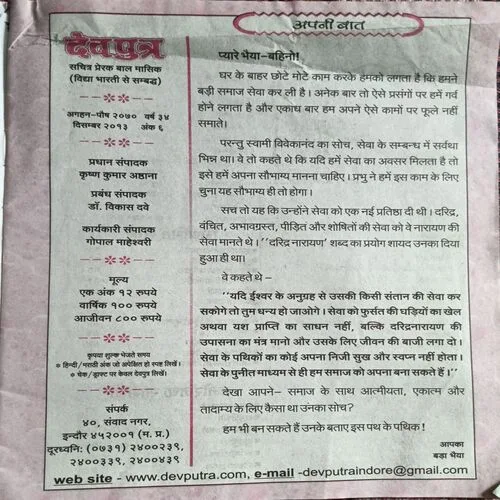 अपनी बात
देवपुत्र
सचित्र प्रेरक बाल मासिक
(विद्या भारती से सम्बद्ध)
अगहन-पौष २०७० वर्ष ३४
दिसम्बर २०१३ अंक ६
प्रधान संपादक
कृष्ण कुमार अष्ठाना
प्रबंध संपादक
डॉ. विकास दवे
कार्यकारी संपादक
गोपाल माहेश्वरी
मूल्य
एक अंक १२ रुपये
वार्षिक १०० रुपये
आजीवन ८०० रुपये
कृपया शुल्क भेजते समय
* हिन्दी/मराठी अंक जो अपेक्षित हो स्पष्ट लिखें।
* चेक/ड्राफ्ट पर केवल देवपुत्र लिखें।
संपर्क
४०, संवाद नगर,
इन्दौर ४५२००१ (म. प्र.)
दूरध्वनि: (०७३१) २४००२३९,
२४००३३९, २४००४३९
प्यारे भैया-बहिनो!
घर के बाहर छोटे मोटे काम करके हमको लगता है कि हमने
बड़ी समाज सेवा कर ली है। अनेक बार तो ऐसे प्रसंगों पर हमें गर्व
होने लगता है और एकाध बार हम अपने ऐसे कामों पर फूले नहीं
समाते।
परन्तु स्वामी विवेकानंद का सोच, सेवा के सम्बन्ध में सर्वथा
भिन्न था। वे तो कहते थे कि यदि हमें सेवा का अवसर मिलता है तो
इसे हमें अपना सौभाग्य मानना चाहिए। प्रभु ने हमें इस काम के लिए
चुना यह सौभाग्य ही तो होगा।
सच तो यह कि उन्होंने सेवा को एक नई प्रतिष्ठा दी थी। दरिद्र,
वंचित, अभावग्रस्त, पीड़ित और शोषितों की सेवा को वे नारायण की
सेवा मानते थे। ''दरिद्र नारायण' शब्द का प्रयोग शायद उनका दिया
हुआ ही था।
वे कहते थे -
''यदि ईश्वर के अनुग्रह से उसकी किसी संतान की सेवा कर
सकोगे तो तुम धन्य हो जाओगे। सेवा को फुर्सत की घड़ियों का खेल
अथवा यश प्राप्ति का साधन नहीं, बल्कि दरिद्रनारायण की
उपासना का मंत्र मानो और उसके लिए जीवन की बाजी लगा दो।
सेवा के पथिकों का कोई अपना निजी सुख और स्वप्न नहीं होता।
सेवा के पुनीत माध्यम से ही हम समाज को अपना बना सकते हैं।''
देखा आपने- समाज के साथ आत्मीयता, एकात्म और
तादाम्य के लिए कैसा था उनका सोच?
हम भी बन सकते हैं उनके बताए इस पथ के पथिक!
आपका
बड़ा भैया
web site - www.devputra.com, e-mail -devputraindore@gmail.com